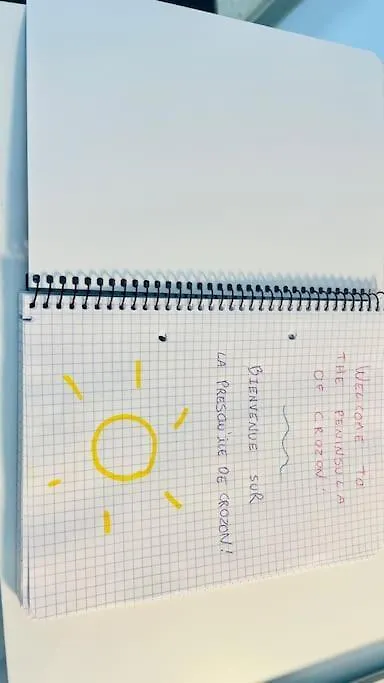 WELCOME TO
THE PENINSULA
OF CROZON!
BIENVENUE SUR
LA PRESQU'ILE DE CROZON!